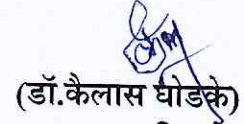 (डॉ.कैलास घोडके)